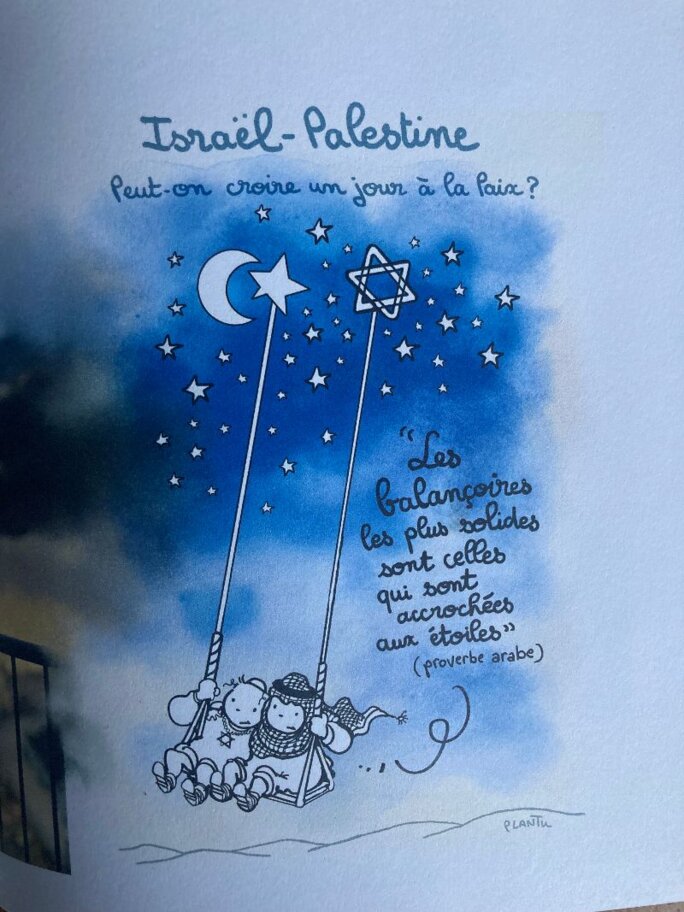 Israël-Palestine
Peut-on croire un jour à la Paix?
"Les
balançoires
les plus solides
sont celles
qui sont
accrochées
aux étoiles"
(proverbe arabe)
PLANTU